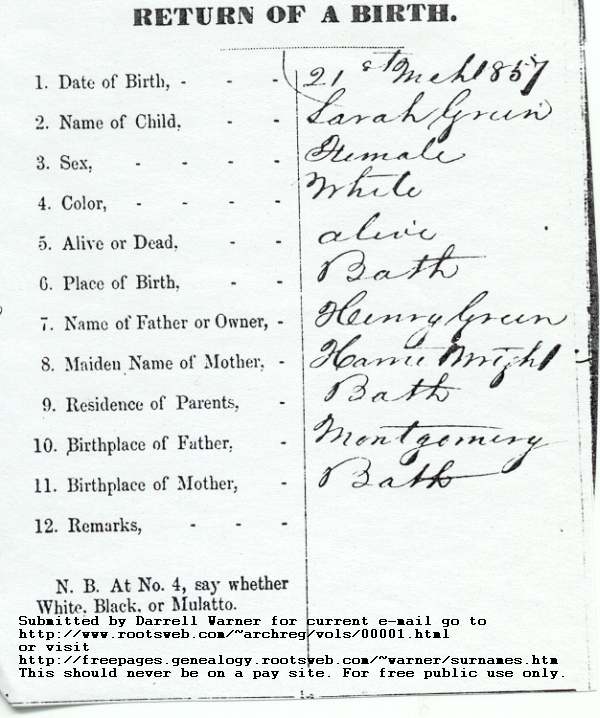 RETURN OF A BIRTH.
1. Date of Birth, - - - 21st Mch 1857
2. Name of Child, - - Sarah Green
3. Sex, - - - - Female
4. Color, - - - - White
5. Alive or Dead, - - alive
6. Place of Birth, - - Bath
7. Name of Father or Owner, - Henry Green
8. Maiden Name of Mother, - Harrie Wright
9. Residence of Parents, - Bath
10. Birthplace of Father, - Montgomery
11. Birthplace of Mother, - Bath
12. Remarks, - - -
N. B. At No. 4, say whether
White, Black, or Mulatto.
Submitted by Darrell Warner for current e-mail go to
http://www.rootsweb.com/~archreg/vols/00001.html
or visit
http://freepages.genealogy.rootsweb.com/~warner/surnames.htm
This should never be on a pay site. For free public use only.